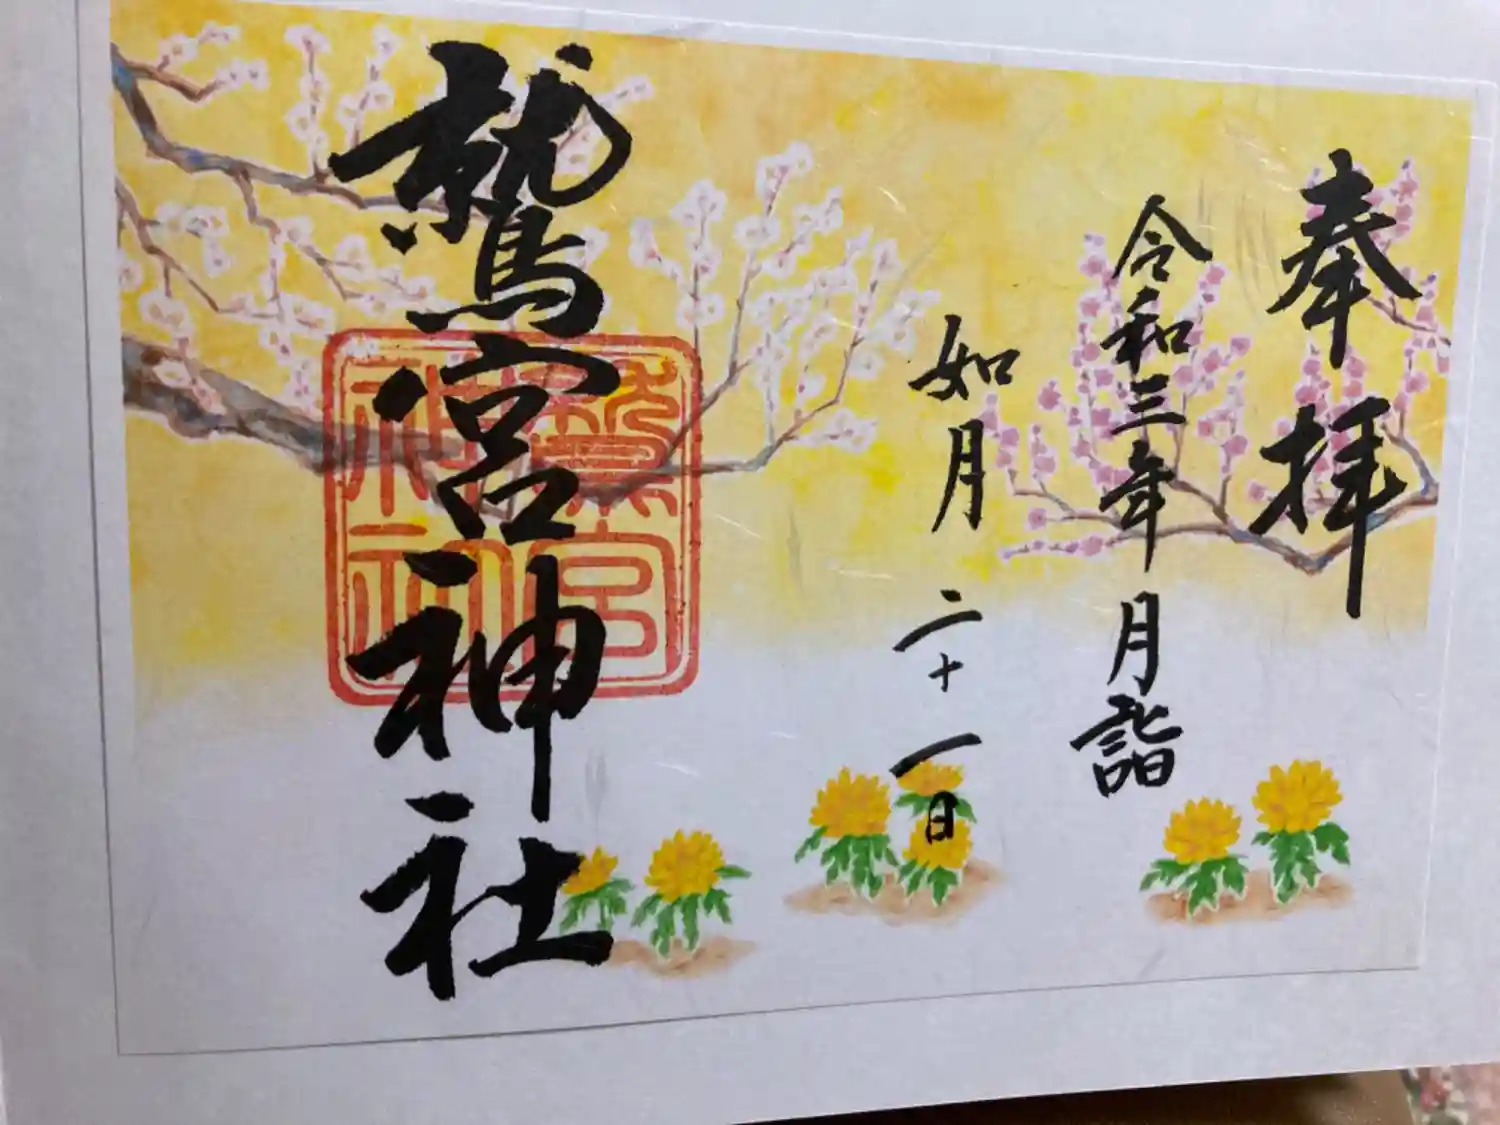 奉拝
令和三年月詣
如月 二十一日
鷲宮神社
鷲宮
神社